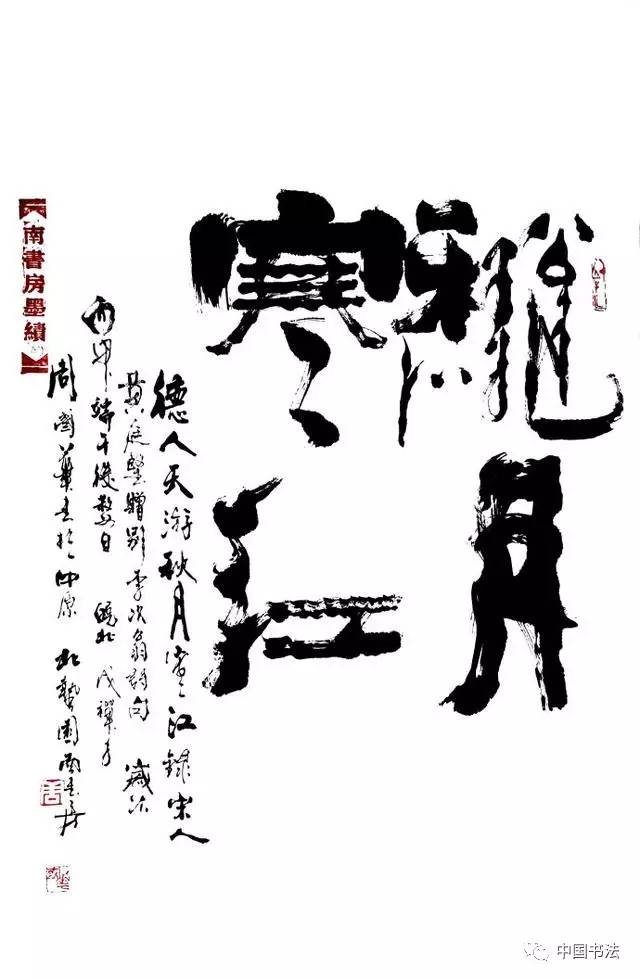 秋月
寒江
德人天游秋月寒江錄宋人
黃庭堅贈別李次翁詩句 歲次
丙申端午後數日 皖北
周國華書於仲原 北藝園南書房
南書房墨績
中国书法